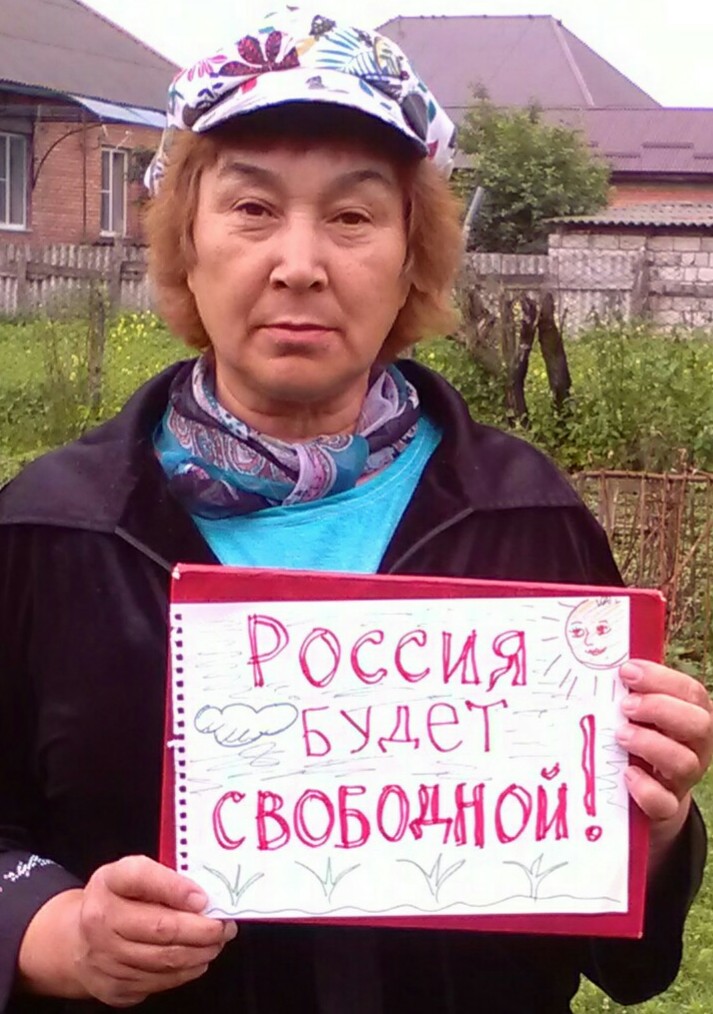 РОССИЯ
БУДЕТ
СВОБОДНОЙ!